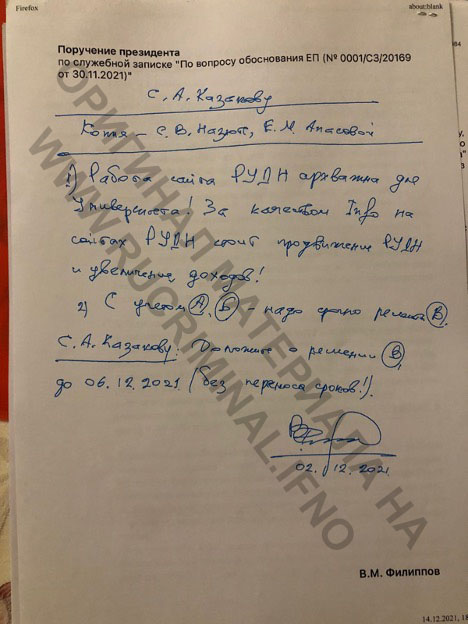 Firefox
about:blank
Поручение президента
по служебной записке "По вопросу обоснования ЕП (№ 0001/СЗ/20169
от 30.11.2021)"
С. А. Казакову
Копия – С. В. Назюте, Е. М. Апасовой
1) Работа сайта РУДН архиважна для
Университета! За качеством Info на
сайтах РУДН стоит продвижение РУДН
и увеличение доходов!
2) С учетом А, Б – надо срочно решить В.
С. А. Казакову: Доложите о решении В,
до 06.12.2021 (без переноса сроков!).
02.12.2021
В.М. Филиппов
14.12.2021, 18
ОРИГИНАЛ МАТЕРИАЛА НА
WWW.RUCRIMINAL.IFNO